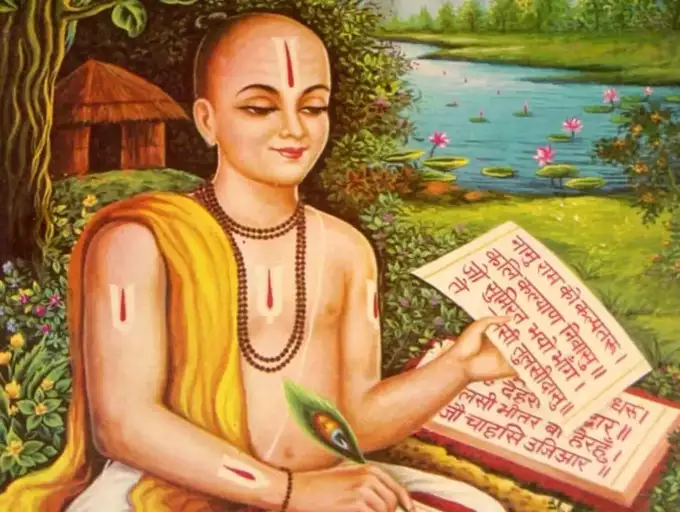 नामु राम को कल्पतरू ।
कलि कल्याण निवासु ॥
जो सुमिरत भयो भाँग ।
तें
तुलसीदासु ॥
धरु ।
देहरी
द्वार ॥
लसी भीतर बा हेरहुँ ।
जौ चाहसि उजिआर ॥